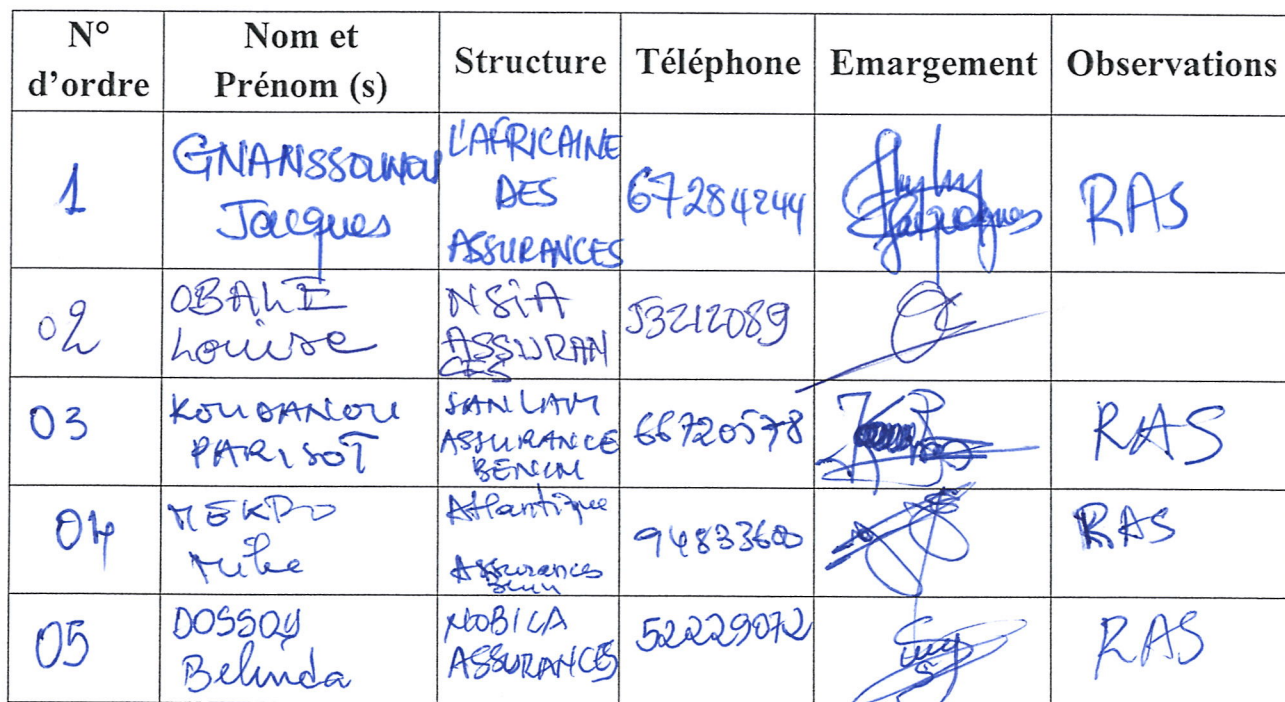 N° d'ordre Nom et Prénom (s) Structure Téléphone Emargement Observations
1 GNANSSOUNOU Jacques L'AFRICAINE DES ASSURANCES 67284244 RAS
02 OBALE Louise NSiA ASSURANCES 53212089
03 KOUDANOU PARISOT SANLAM ASSURANCE BENIN 66720578 RAS
04 MEKPO Mike Atlantique Assurances Benin 94833600 RAS
05 DOSSOU Belinda NOBILA ASSURANCES 52229072 RAS